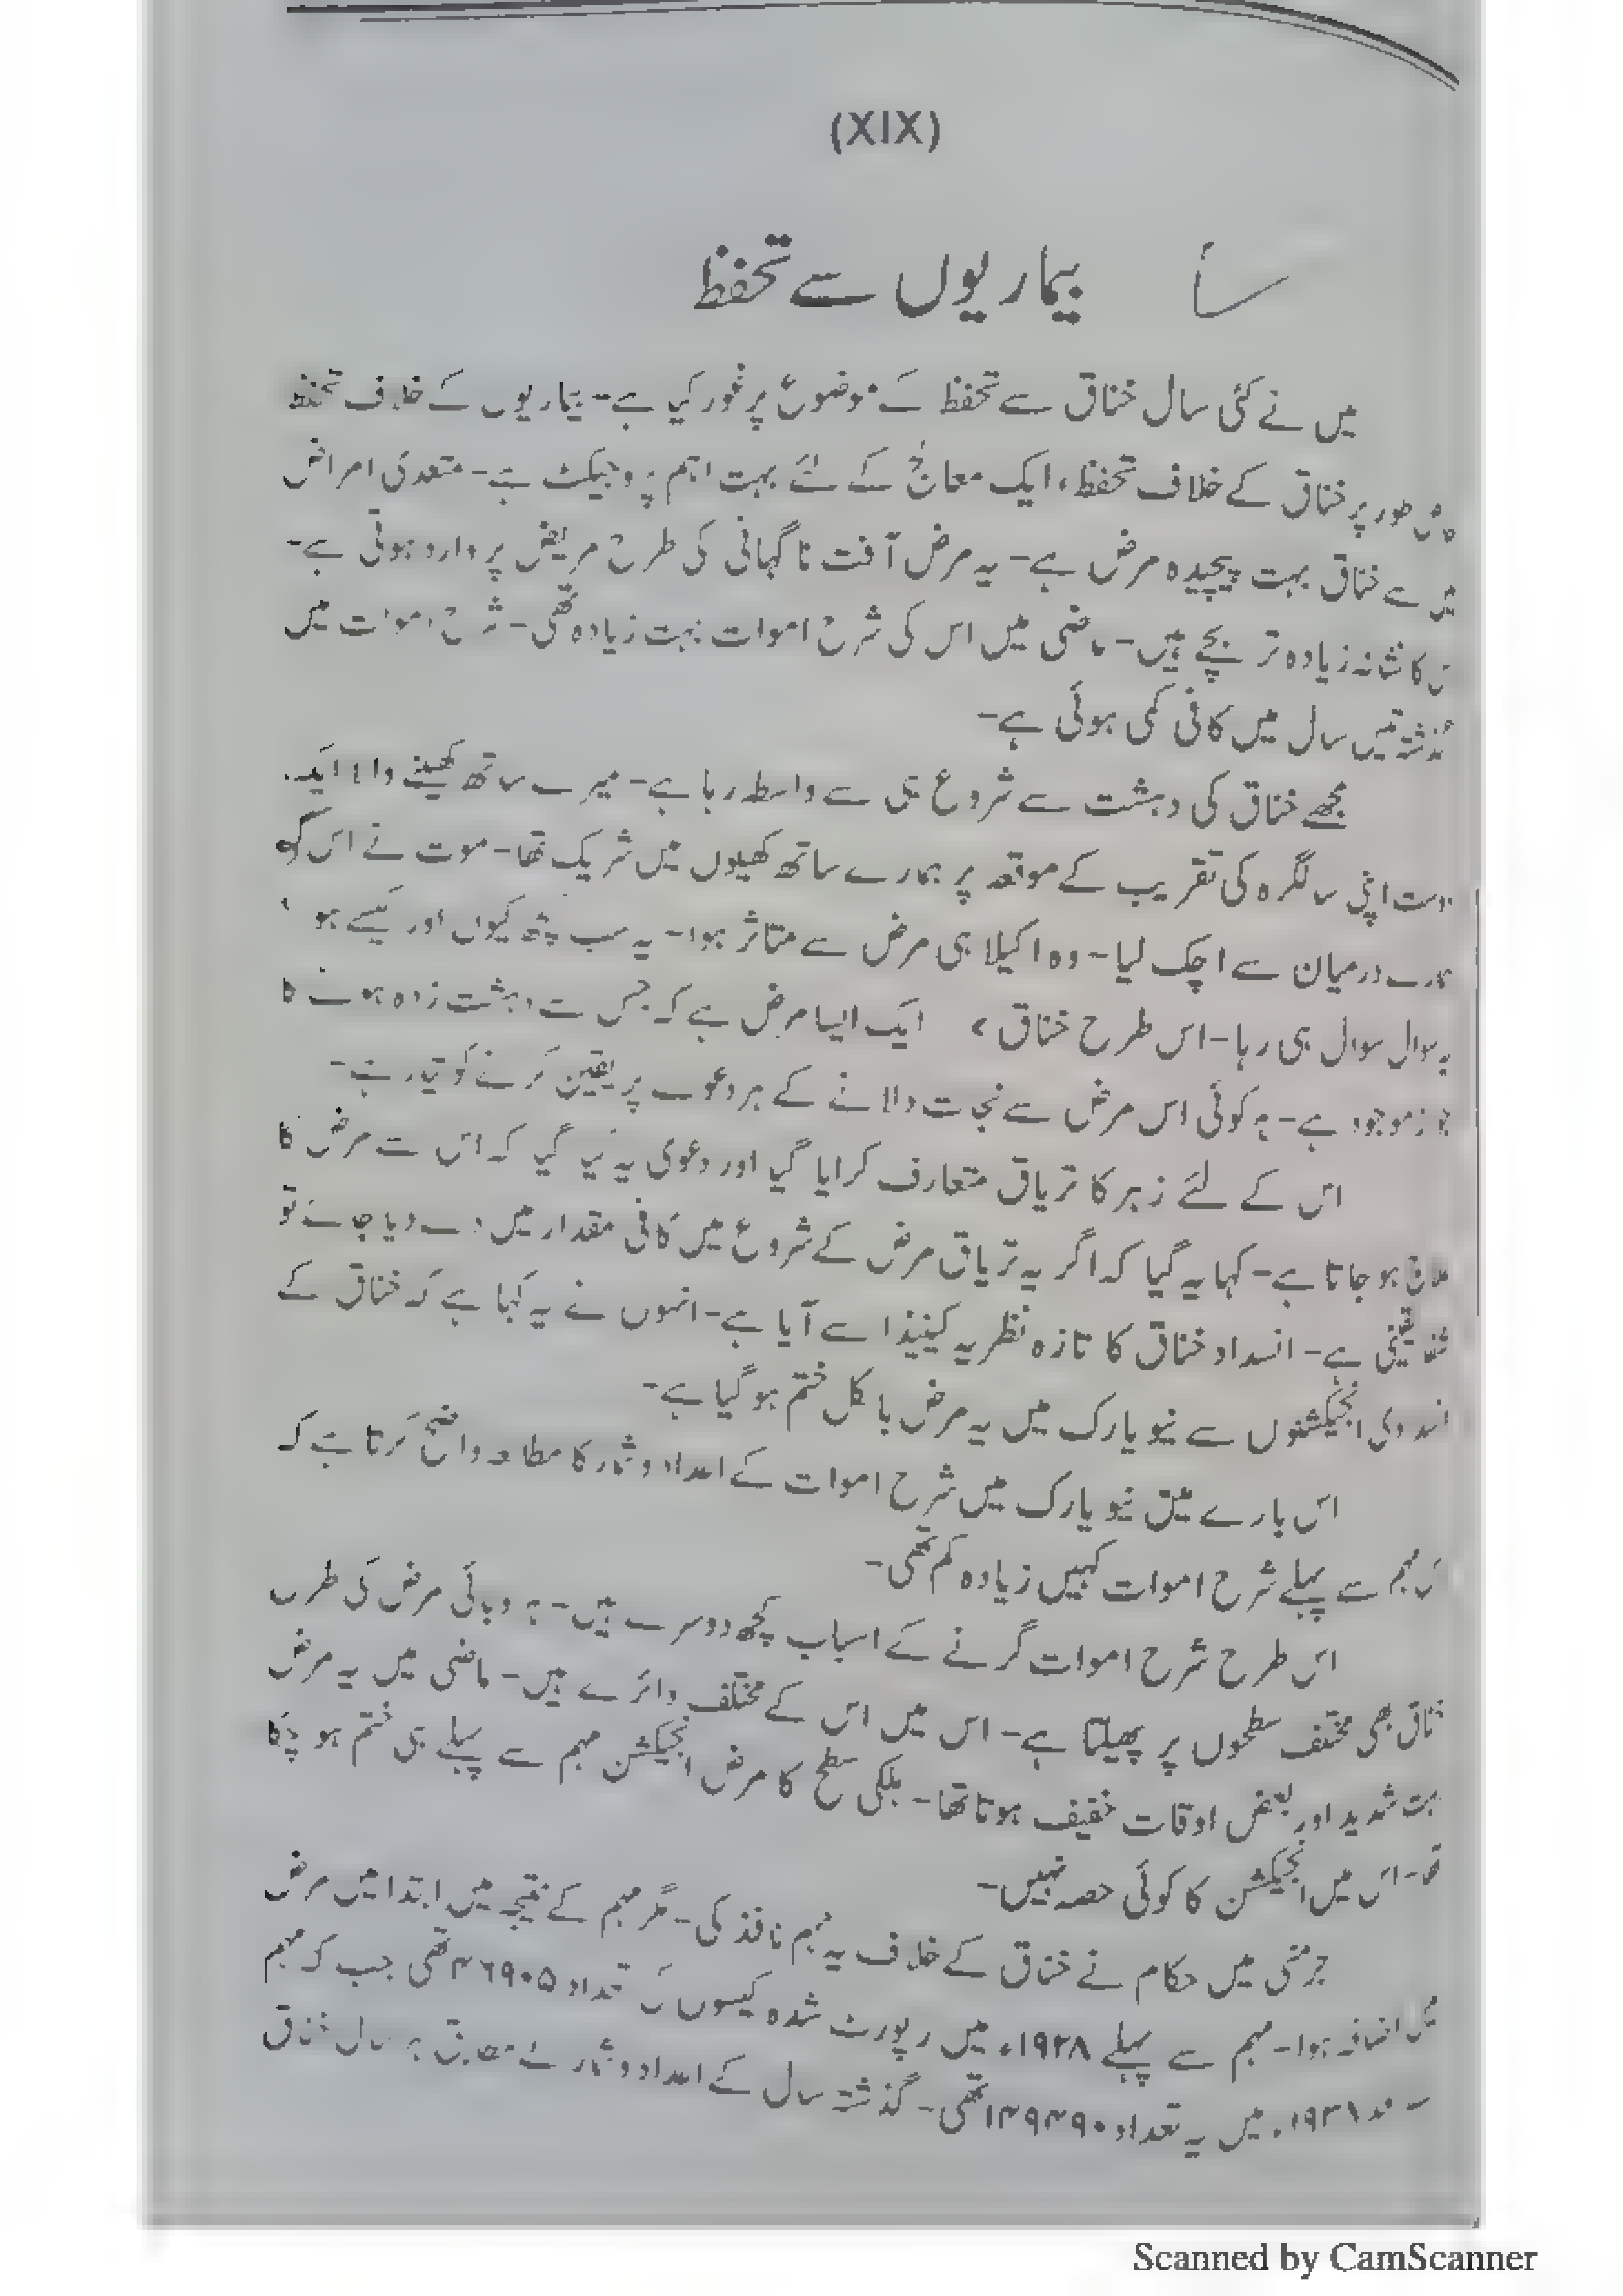 (XIX)
بیماریوں سے تحفظ
میں نے کئی سال خناق سے تحفظ کے موضوع پر غور کیا ہے۔ بیماریوں کے خلاف تحفظ
طور پر خناق کے خلاف تحفظ، ایک معالج کے لئے بہت اہم پروجیکٹ ہے۔ متعدی امراض
میں سے خناق بہت پیچیدہ مرض ہے۔ یہ مرض آفت ناگہانی کی طرح مریض پر وارد ہوتی ہے۔
کا نشانہ زیادہ تر بچے ہیں۔ ماضی میں اس کی شرح اموات بہت زیادہ تھی۔ شرح اموات میں
گذشتہ تیس سال میں کافی کمی ہوئی ہے۔
مجھے خناق کی دہشت سے شروع ہی سے واسطہ رہا ہے۔ میرے ساتھ کھیلنے والا ایک
دوست اپنی سالگرہ کی تقریب کے موقعہ پر ہمارے ساتھ کھیلوں میں شریک تھا۔ موت نے اس کو
ہمارے درمیان سے اچک لیا۔ وہ اکیلا ہی مرض سے متاثر ہوا۔ یہ سب کچھ کیوں اور کیسے ہوا
یہ سوال سوال ہی رہا۔ اس طرح خناق ایک ایسا مرض ہے کہ جس سے دہشت زدہ ہونے کا
جواز موجود ہے۔ ہر کوئی اس مرض سے نجات دلانے کے ہر دعوے پر یقین کرنے کو تیار ہے۔
اس کے لئے زہر کا تریاق متعارف کرایا گیا اور دعویٰ یہ کیا گیا کہ اس سے مرض کا
علاج ہو جاتا ہے۔ کہا یہ گیا کہ اگر یہ تریاق مرض کے شروع میں کافی مقدار میں دے دیا جائے تو
شفا یقینی ہے۔ انسداد خناق کا تازہ نظریہ کینیڈا سے آیا ہے۔ انہوں نے یہ کہا ہے کہ خناق کے
انجیکشنوں سے نیویارک میں یہ مرض بالکل ختم ہو گیا ہے۔
اس بارے میں نیویارک میں شرح اموات کے اعداد و شمار کا مطالعہ واضح کرتا ہے کہ
مہم سے پہلے شرح اموات کہیں زیادہ کم تھی۔
اس طرح شرح اموات گرنے کے اسباب کچھ دوسرے ہیں۔ ہر وبائی مرض کی طرح
خناق بھی مختلف سطحوں پر پھیلتا ہے۔ اس میں اس کے مختلف دائرے ہیں۔ ماضی میں یہ مرض
بہت شدید اور بعض اوقات خفیف ہوتا تھا۔ ہلکی سطح کا مرض انجیکشن مہم سے پہلے ہی ختم ہو چکا
تھا۔ اس میں انجیکشن کا کوئی حصہ نہیں۔
جرمنی میں حکام نے خناق کے خلاف یہ مہم نافذ کی۔ مگر مہم کے نتیجے میں ابتدا میں مرض
میں اضافہ ہوا۔ مہم سے پہلے ۱۹۲۸ء میں رپورٹ شدہ کیسوں کی تعداد ۴۶۹۰۵ تھی جب کہ مہم
میں یہ تعداد ۱۴۹۴۹۰ تھی۔ گذشتہ سال کے اعداد و شمار کے مطابق ہر سال خناق
Scanned by CamScanner